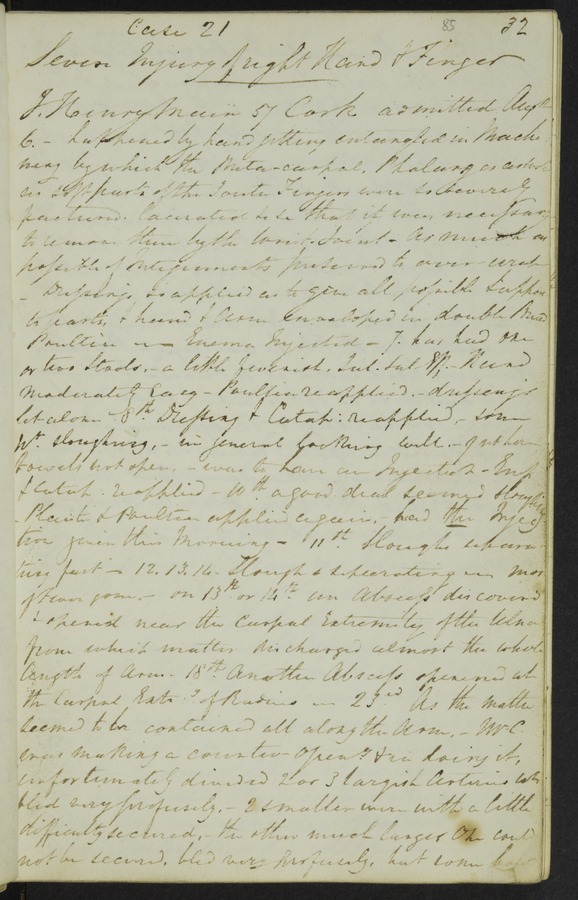 Case 21 85 32
Severe Injury of right Hand & Finger
J. Henry 57 Cork admitted Augt
6. – happened by hand getting entangled in Machi
nery by which the Meta-carpal, Phalang as
as parts of the Fingers were so severely
fractured, lacerated &c that it was necessary
to remove them by the wrist-Joint – As much as
possible of Integuments preserved to cover
– Dressings applied as to give all possible Suppor
to parts, & hand & Arm enveloped in double Bread
Poultice – Enema Injected – 7. has had one
or two Stools, – a little feverish. – Hand
moderately Easy – Poultice reapplied. – dressings
let alone 8th Dressing & Catap: reapplied, some
sloughing, – in general looking well. –
bowels not open, – was to have an Injection –
& Catap. reapplied – 10th a good deal seemed Sloughing
– & Poultice applied again, – had the Injec
tion given this Morning – 11th Sloughs separa
ting fast – 12. 13. 14. Sloughs separating
gone. – on 13th or 14th an Abscess discovered
& opened near the Carpal Extremity of the Ulna
from which matter discharged almost the whole
length of Arm. – 18th Another Abscess opened at
the Carpal Extry of Radius – 23rd As the matter
seemed to be contained all along the Arm, – Mr C.
was making a counter openg & in doing it,
unfortunately divided 2 or 3 largish Arteries
bled very profusely, – 2 smaller were with a little
difficulty secured, the other much larger One could
not be secured, bled very profusely, but some